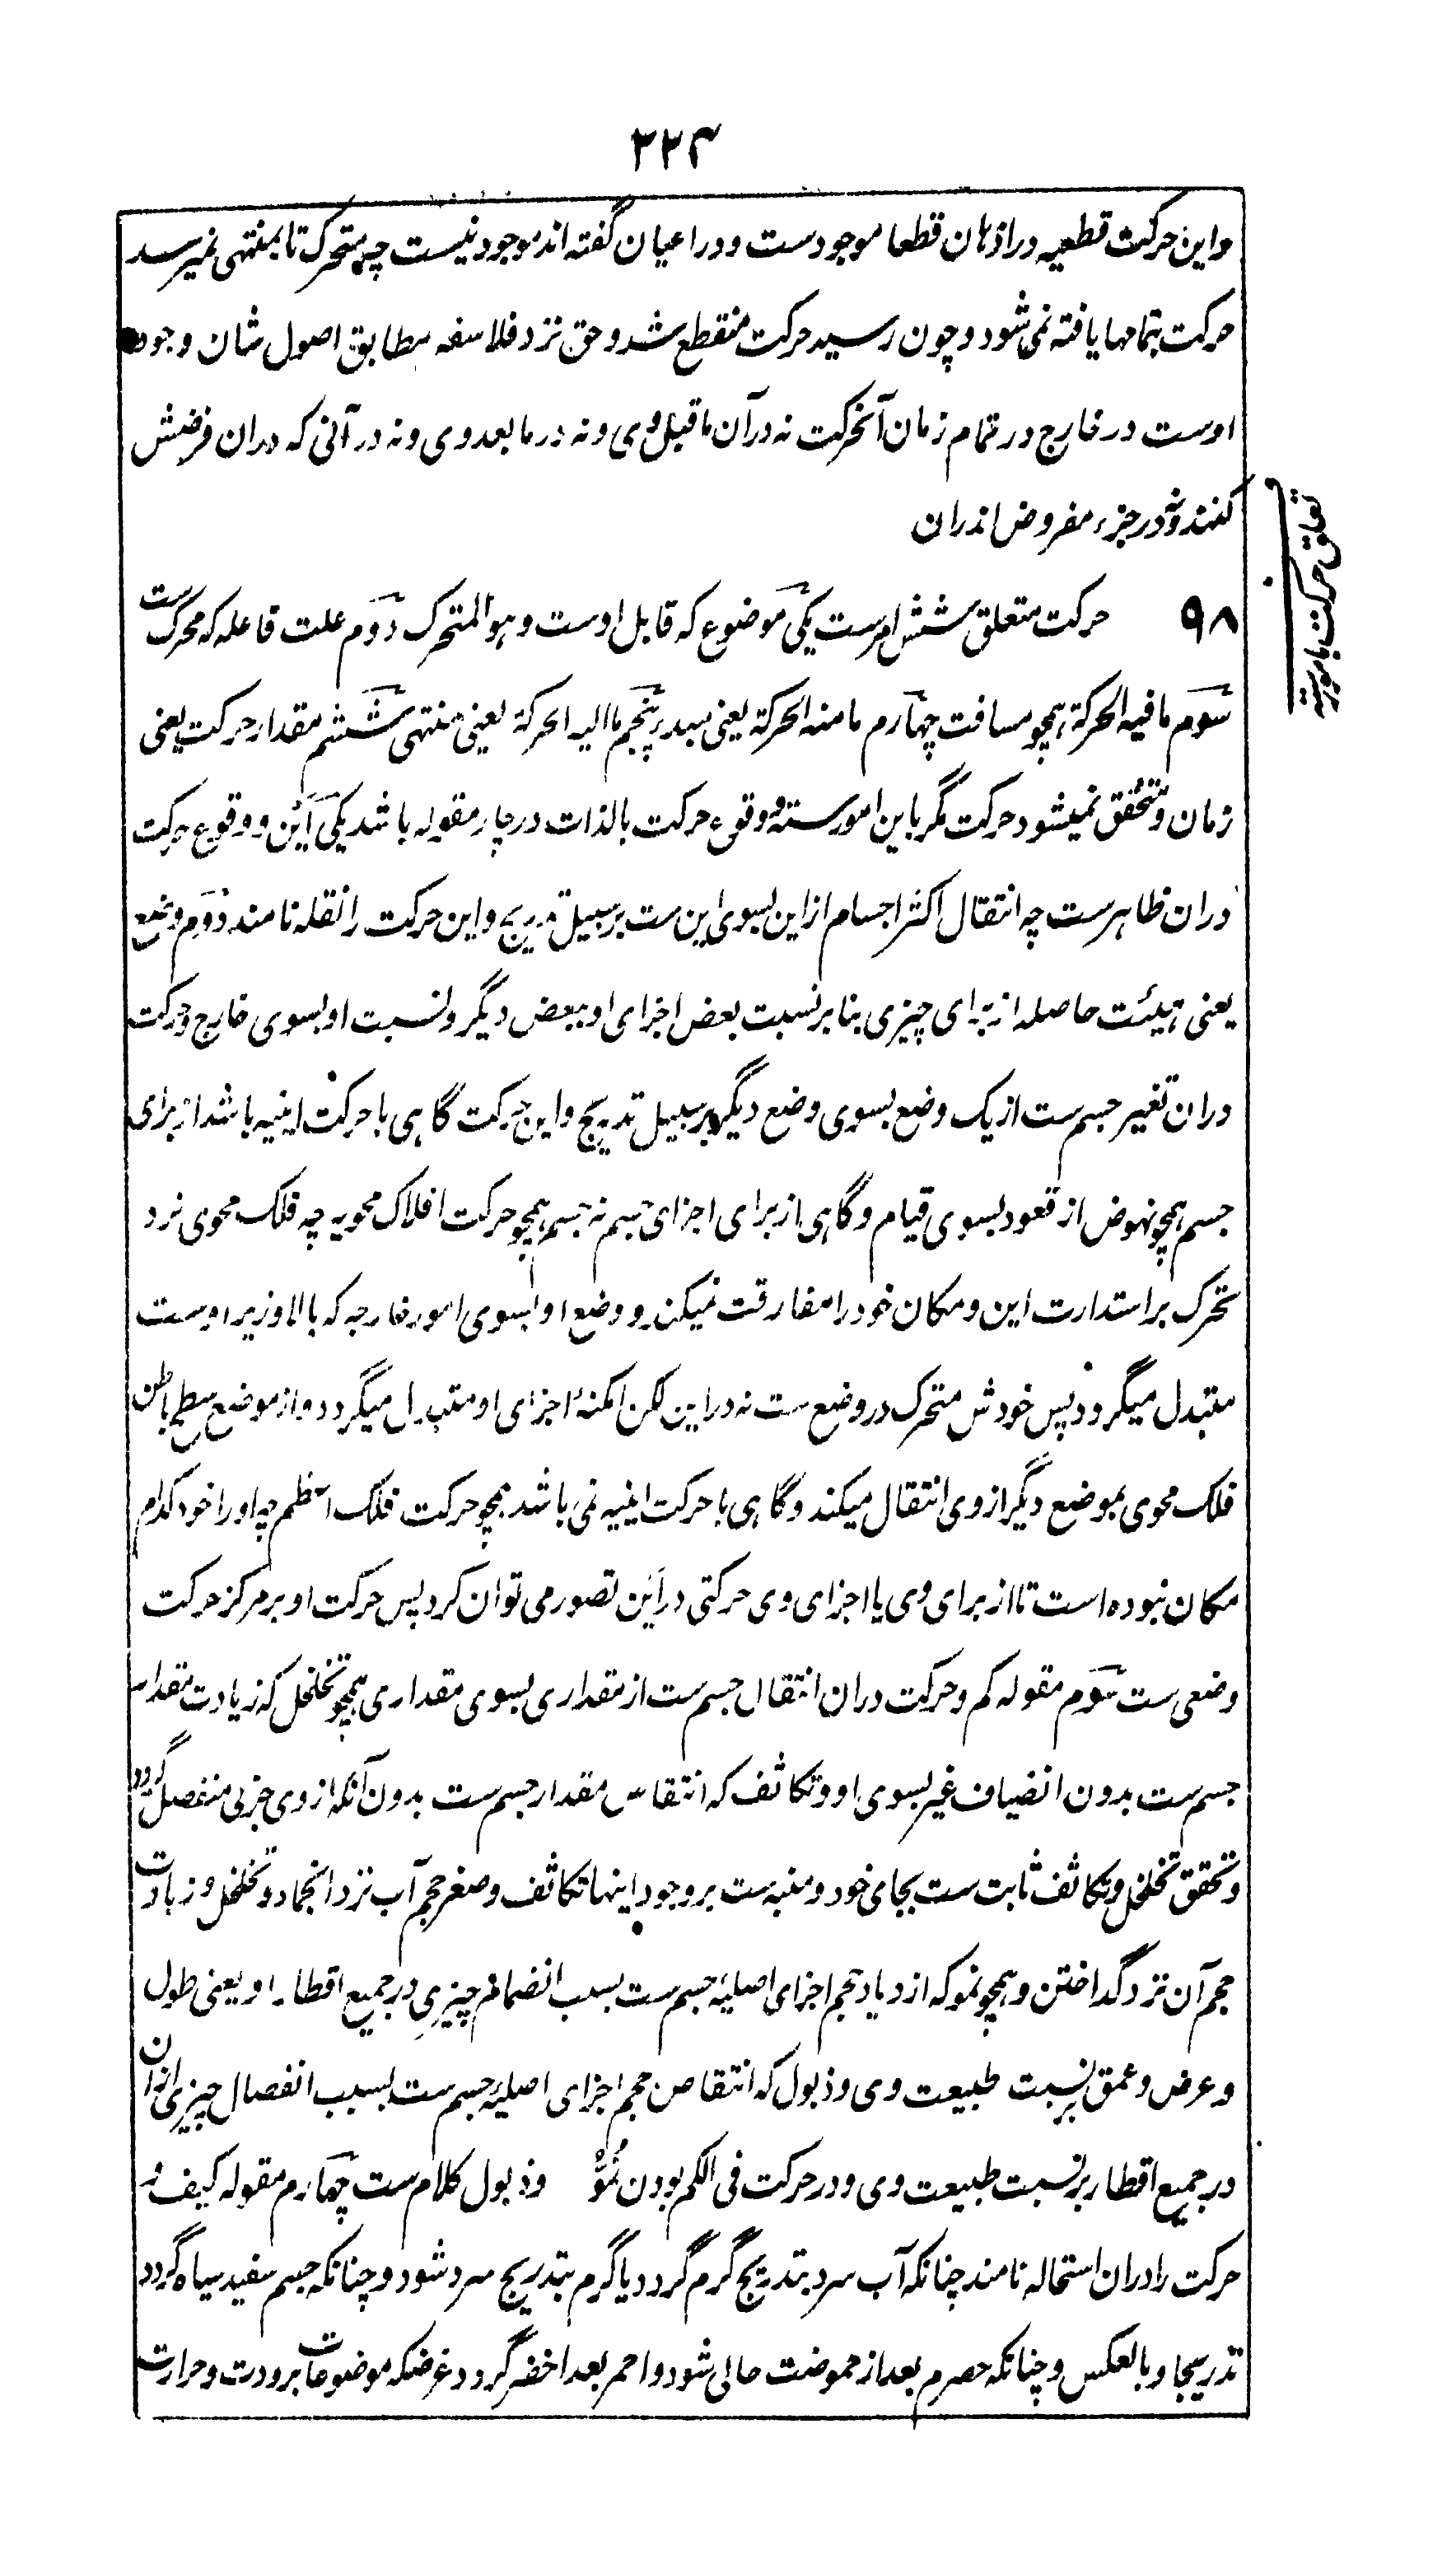 ۳۲۴
واین حرکت قطعیه در اذهان قطعا موجودست ودر اعیان گفته اند موجود نیست چه متحرک تا بمنتهی نمیرسد
حرکت بتمامها یافته نمی شود وچون رسید حرکت منقطع شد وحق نزد فلاسفه مطابق اصول شان وجود
اوست در خارج در تمام زمان آنحرکت نه در آن ماقبل وی ونه در مابعد وی ونه در آنی که دران فرضش
کنند ونه در جزء مفروض اندران
تعلق حرکت بامور سته
۹۸ حرکت متعلق شش امرست یکی موضوع که قابل اوست وهو المتحرک دوم علت فاعله که محرک ست
سوم مافیه الحرکة همچو مسافت چهارم مامنه الحرکة یعنی مبدء پنجم ماالیه الحرکة یعنی منتهی ششم مقدار حرکت یعنی
زمان ومتحقق نمیشود حرکت مگر باین امور سته ووقوع حرکت بالذات در چار مقوله باشد یکی این ووقوع حرکت
دران ظاهرست چه انتقال اکثر اجسام از این بسوی این ست بر سبیل تدریج واین حرکت را نقله نامند دوم وضع
یعنی هیئت حاصله از برای چیزی بنا بر نسبت بعض اجزای او ببعض دیگر ونسبت او بسوی خارج وحرکت
دران تغیر جسم ست از یک وضع بسوی وضع دیگر بر سبیل تدریج واین حرکت گاهی با حرکت اینیه باشد از برای
جسم همچو نهوض از قعود بسوی قیام وگاهی از برای اجزای جسم نه جسم همچو حرکت افلاک محویه چه فلک محوی نزد
تحرک بر استدارت این ومکان خود را مفارقت نمیکند ووضع او بسوی امور خارجه که بالا وزیر اوست
متبدل میگردد پس خودش متحرک در وضع ست نه در این لکن امکنهٔ اجزای او متبدل میگردد واز موضع سطح باطن
فلک محوی بموضع دیگر از وی انتقال میکند وگاهی با حرکت اینیه نمی باشد همچو حرکت فلک اعظم چه او را خود کدام
مکان نبوده است تا از برای وی یا اجزای وی حرکتی در این تصور می توان کرد پس حرکت او بر مرکز حرکت
وضعی ست سوم مقوله کم وحرکت دران انتقال جسم ست از مقداری بسوی مقداری همچو تخلخل که زیادت مقدار
جسم ست بدون انضیاف غیر بسوی او وتکاثف که انتقاص مقدار جسم ست بدون آنکه از وی جزئی منفصل گردد
وتحقق تخلخل وتکاثف ثابت ست بجای خود ومنبه ست بر وجود اینها تکاثف وصغر حجم آب نزد انجماد وتخلخل وزیادت
حجم آن نزد گداختن وهمچو نمو که ازدیاد حجم اجزای اصلیهٔ جسم ست بسبب انضمام چیزی در جمیع اقطار او یعنی طول
وعرض وعمق بر نسبت طبیعت وی وذبول که انتقاص حجم اجزای اصلیهٔ جسم ست بسبب انفصال چیزی ازان
در جمیع اقطار بر نسبت طبیعت وی ودر حرکت فی الکم بودن نموّ وذبول کلام ست چهارم مقوله کیف و
حرکت را دران استحاله نامند چنانکه آب سرد بتدریج گرم گردد یا گرم بتدریج سرد شود وچنانکه جسم سفید سیاه گردد
تدریجا وبالعکس وچنانکه حصرم بعد از حموضت حالی شود واحمر بعد اخضر گردد غرضکه موضوعات برودت وحرارت